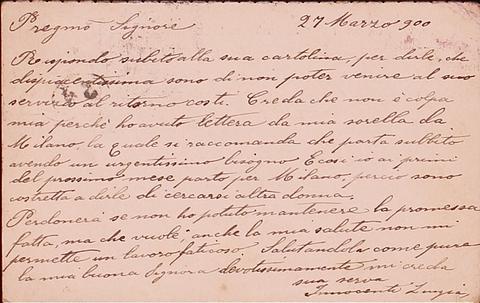 Pregmo Signore 27 Marzo 900
Rispondo subito alla sua cartolina, per dirle, che
dispiacentissima sono di non poter venire al suo
servizio al ritorno costì. Creda che non è colpa
mia perchè ho avuto lettera da mia sorella da
Milano, la quale si raccomanda che parta subbito
avendo un urgentissimo bisogno E così io ai primi
del prossimo mese parto per Milano, perciò sono
costretta a dirle di cercarsi altra donna.
Perdonerà se non ho potuto mantenere la promessa
fatta, ma che vuole, anche la mia salute non mi
permette un lavoro faticoso. Salutandola come pure
la mia buona Signora devotissimamente mi creda
sua serva
Innocenti Luigia